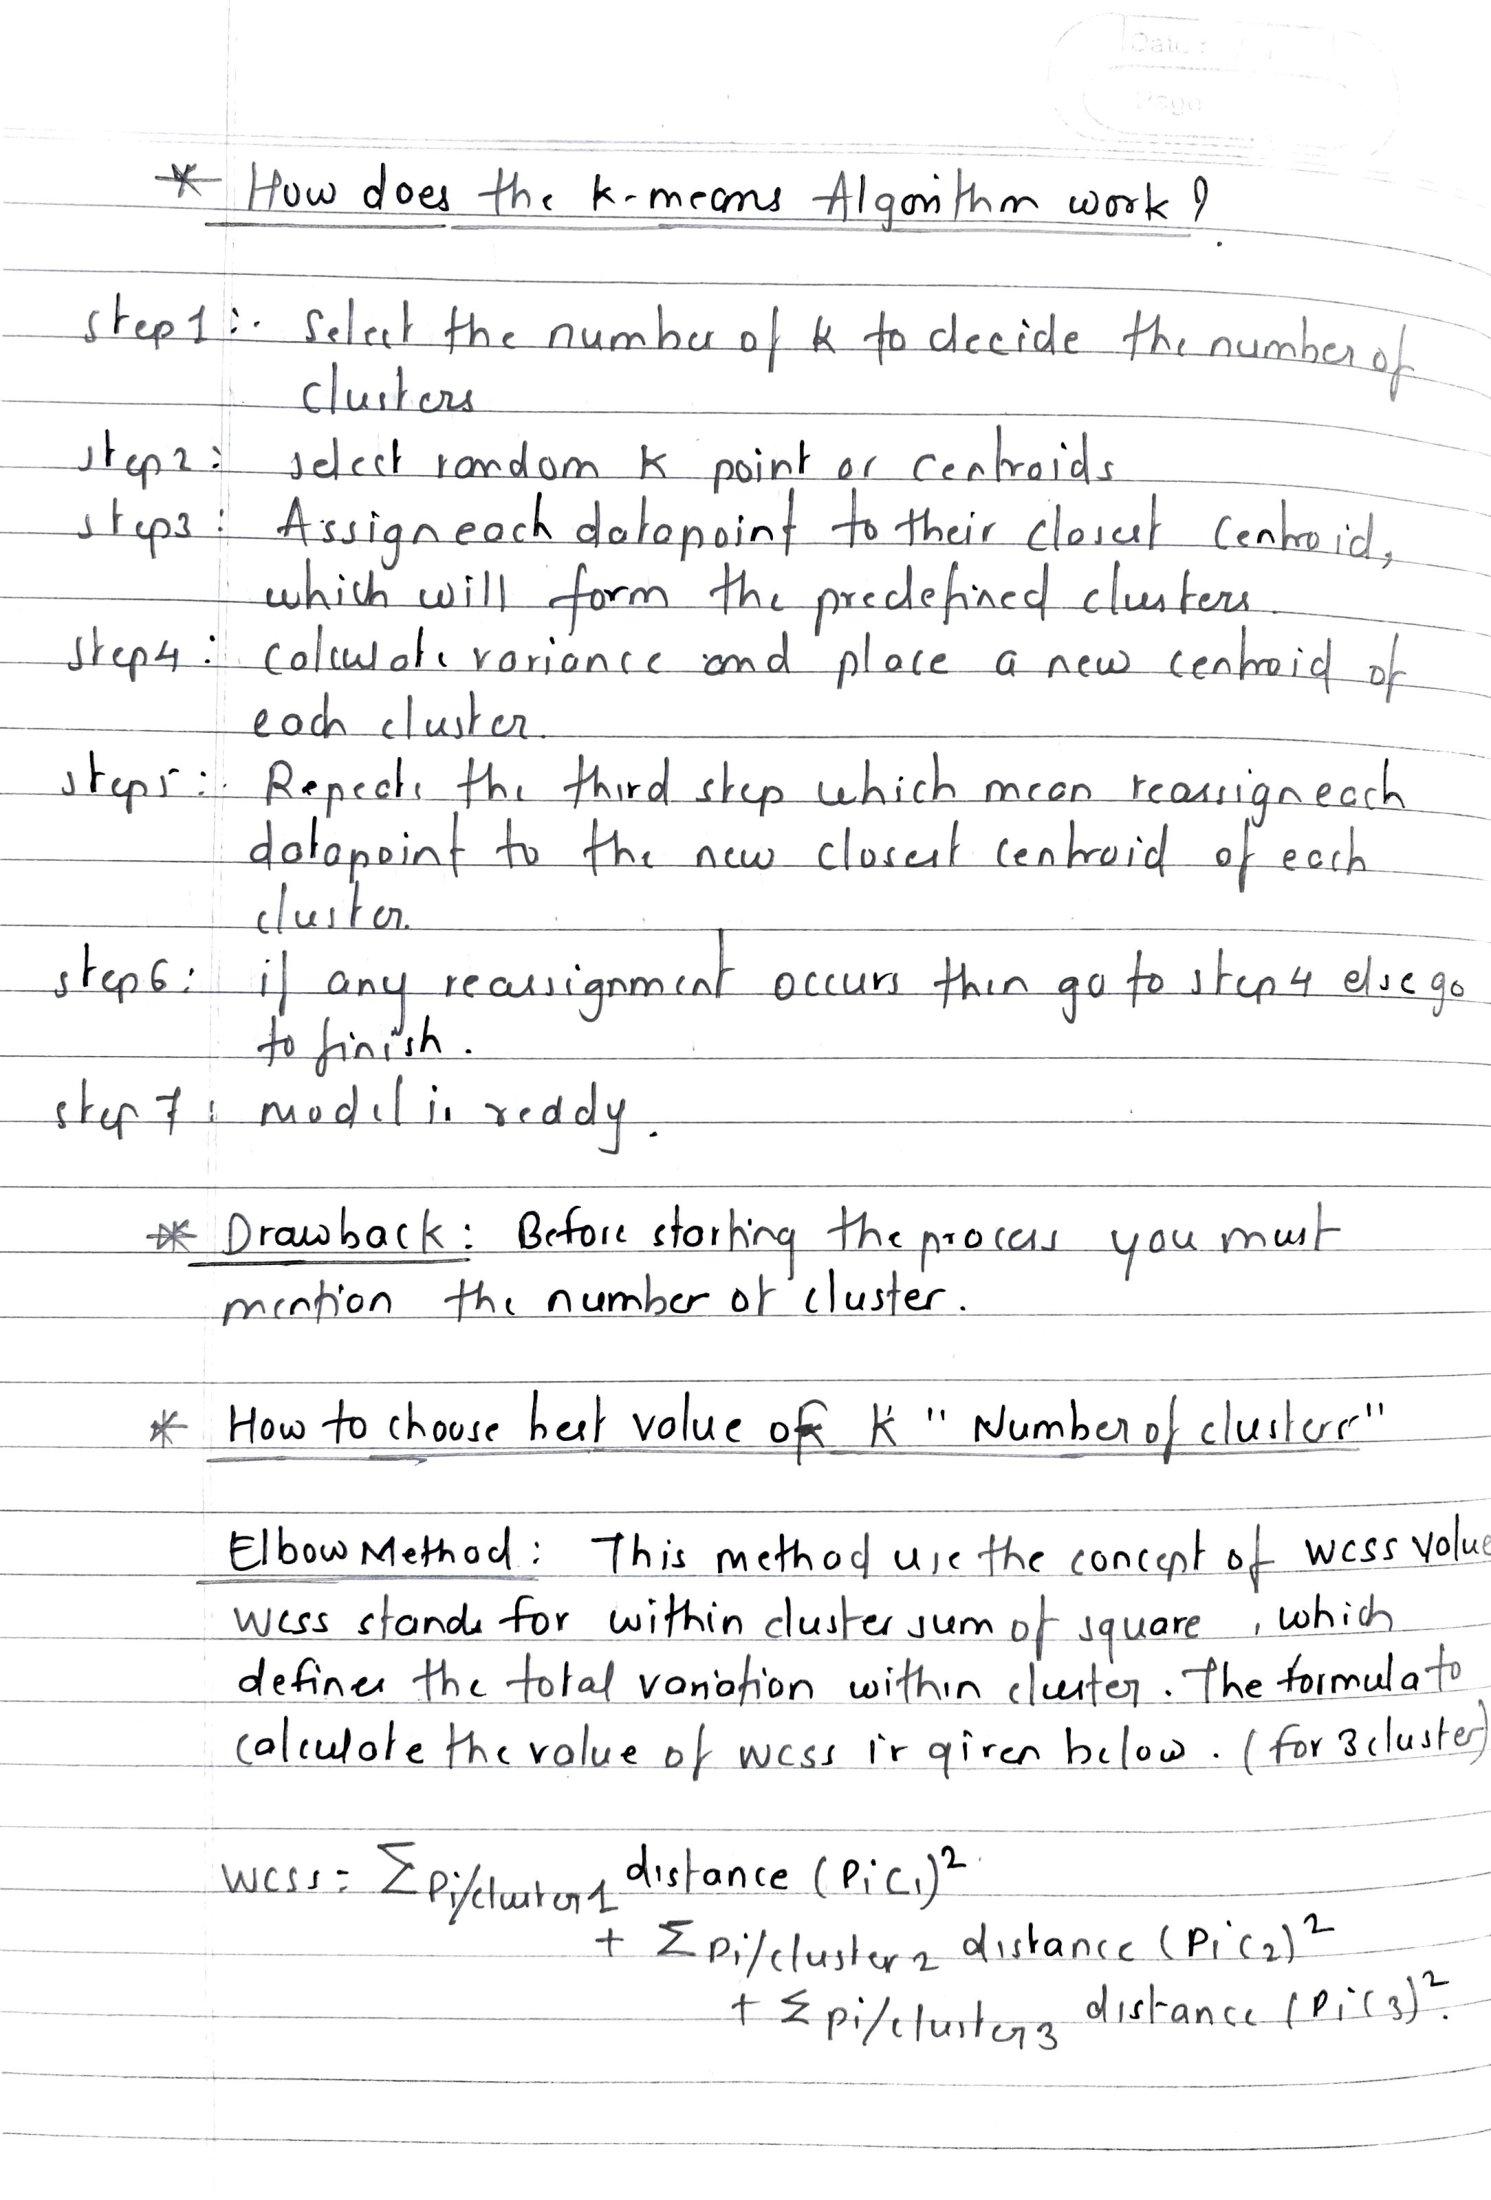 Date :
Page
* How does the k-means Algorithm work ?
step1 :. Select the number of k to decide the number of
clusters
step2 : select random K point or centroids
step3 : Assign each datapoint to their closest centroid,
which will form the predefined clusters.
step4 : calculate variance and place a new centroid of
each cluster.
step5 :. Repeats the third step which mean reassign each
datapoint to the new closest centroid of each
cluster.
step6 : if any reassignment occurs then go to step 4 else go
to finish.
step 7 : model is reddy.
* Drawback : Before starting the process you must
mention the number of cluster.
* How to choose best value of K " Number of clusters"
Elbow Method : This method use the concept of WCSS value
WCSS stands for within cluster sum of square , which
defines the total variation within cluster. The formula to
calculate the value of WCSS is given below. (for 3 cluster)
WCSS = Σ Pi/cluster1 distance (Pi C1)²
+ Σ Pi/cluster2 distance (Pi C2)²
+ Σ Pi/cluster3 distance (Pi C3)².